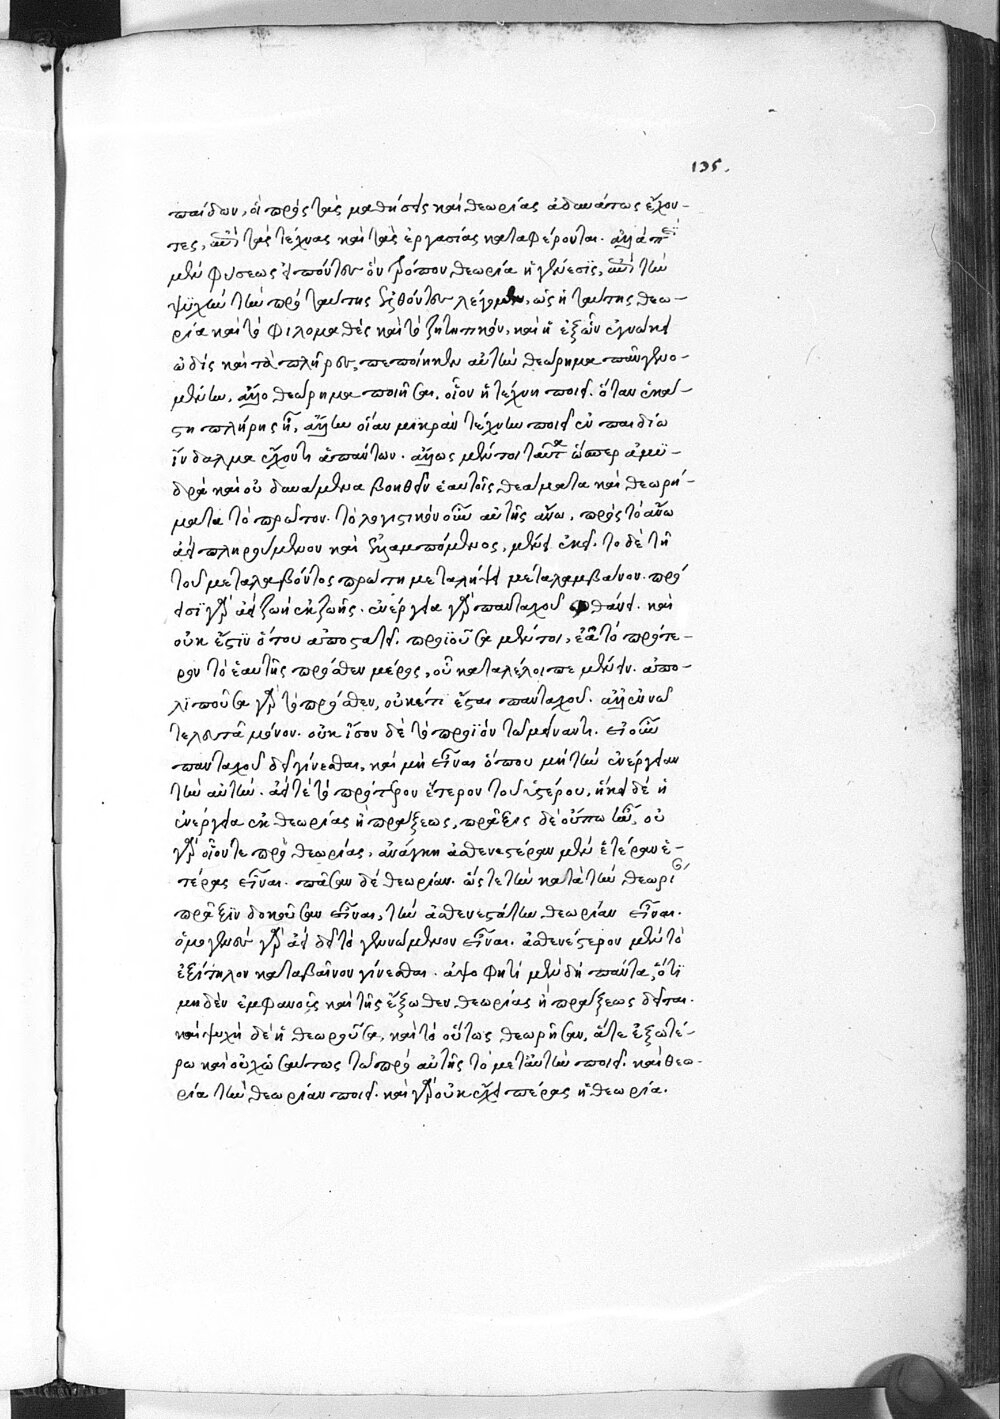 135.
παίδων, οἳ πρὸς τὰς μαθήσεις καὶ θεωρίας ἀδυνάτως ἔχον-
τες, ἐπὶ τὰς τέχνας καὶ τὰς ἐργασίας καταφέρονται. ἀλλὰ περὶ
μὲν φύσεως εἰπόντες ὃν τρόπον θεωρία ἡ γένεσις, ἐπὶ τὴν
ψυχὴν τὴν πρὸ ταύτης ἐλθόντες λέγωμεν, ὡς ἡ ταύτης θεω-
ρία καὶ τὸ φιλομαθὲς καὶ τὸ ζητητικὸν, καὶ ἡ ἐξ ὧν ἐγνώκει
ὠδὶς καὶ τὸ πλῆρες, πεποίηκεν αὐτὴν θεώρημα πᾶν γενο-
μένην, ἄλλο θεώρημα ποιῆσαι. οἷον ἡ τέχνη ποιεῖ. ὅταν ἑκάσ-
τη πλήρης ᾖ, ἄλλην οἵαν μικρὰν τέχνην ποιεῖ ἐν παιδίω
ἴνδαλμα ἔχοντι ἁπάντων. ἄλλως μέντοι ταῦτα ὥσπερ ἀμυ-
δρὰ καὶ οὐ δυνάμενα βοηθεῖν ἑαυτοῖς θεάματα καὶ θεωρή-
ματα τὸ πρῶτον. τὸ λογιστικὸν οὖν αὐτῆς ἄνω, πρὸς τὸ ἄνω
ἀεὶ πληρούμενον καὶ ἐλλαμπόμενος, μένει ἐκεῖ. τὸ δὲ τῆ
τοῦ μεταλαβόντος πρώτη μεταλήψει μεταλαμβάνον. πρό
εισι γὰρ ἀεὶ ζωὴ ἐκ ζωῆς. ἐνέργεια γὰρ πανταχοῦ φθάνει. καὶ
οὐκ ἔστιν ὅτου ἀποστατεῖ. προϊοῦσα μέντοι, ἐᾶ τὸ πρότε-
ρον τὸ ἑαυτῆς πρόσθεν μέρος, οὗ καταλέλοιπε μένειν. ἀπο-
λιποῦσα γὰρ τὸ πρόσθεν, οὐκέτι ἔσται πανταχοῦ. ἀλλ' ἐν ᾧ
τελευτᾶ μόνον. οὐκ ἴσον δὲ τὸ προϊὸν τῶ μείναντι. εἰ οὖν
πανταχοῦ δεῖ γίνεσθαι, καὶ μὴ εἶναι ὅπου μὴ τὴν ἐνέργειαν
τὴν αὐτὴν. ἀεί τε τὸ πρότερον ἕτερον τοῦ ὑστέρου, ἥκει δὲ ἡ
ἐνέργεια ἐκ θεωρίας ἢ πράξεως, πρᾶξις δὲ οὔπω ἦν, οὐ
γὰρ οἷόντε πρὸ θεωρίας, ἀνάγκη ἀσθενεστέραν μὲν ἑτέραν ἑ-
τέρας εἶναι. πᾶσαν δὲ θεωρίαν. ὥστε τὴν κατὰ τὴν θεωρίαν
πρᾶξιν δοκοῦσαν εἶναι, τὴν ἀσθενεστάτην θεωρίαν εἶναι.
ὁμογενὲς γὰρ ἀεὶ δεῖ τὸ γεννώμενον εἶναι. ἀσθενέστερον μὲν τὸ
ἐξίτηλον καταβαῖνον γίνεσθαι. ἀψοφητὶ μὲν δὴ πάντα, ὅτι
μηδὲν ἐμφανοῖς καὶ τῆς ἔξωθεν θεωρίας ἢ πράξεως δεῖται.
καὶ ψυχὴ δὲ ἡ θεωροῦσα, καὶ τὸ οὕτως θεωρῆσαν, ἅτε ἐξωτέ-
ρω καὶ οὐχ ὡσαύτως τῶ πρὸ αὐτῆς τὸ μετ' αὐτὴν ποιεῖ. καὶ θεω-
ρία τὴν θεωρίαν ποιεῖ. καὶ γὰρ οὐκ ἔχει πέρας ἡ θεωρία.